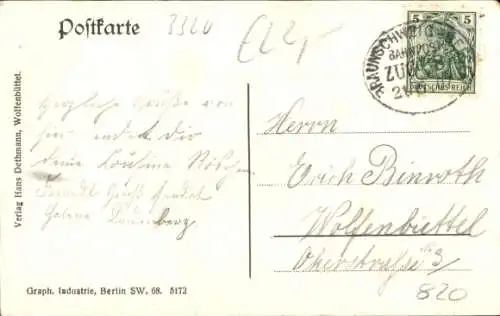 Postkarte
3320
£2,-
5 5
BRAUNSCHWEIG
BAHNPOST
ZUG
DEUTSCHES REICH
Verlag Hans Dethmann, Wolfenbüttel.
Herzliche Grüße von
hier sendet dir
deine Cousine Röschen
Freundl Gruß sendet
Helene Lauenberg
Herrn
Erich Binroth
Wolfenbüttel
Okerstraße
820
Graph. Industrie, Berlin SW. 68. 5172